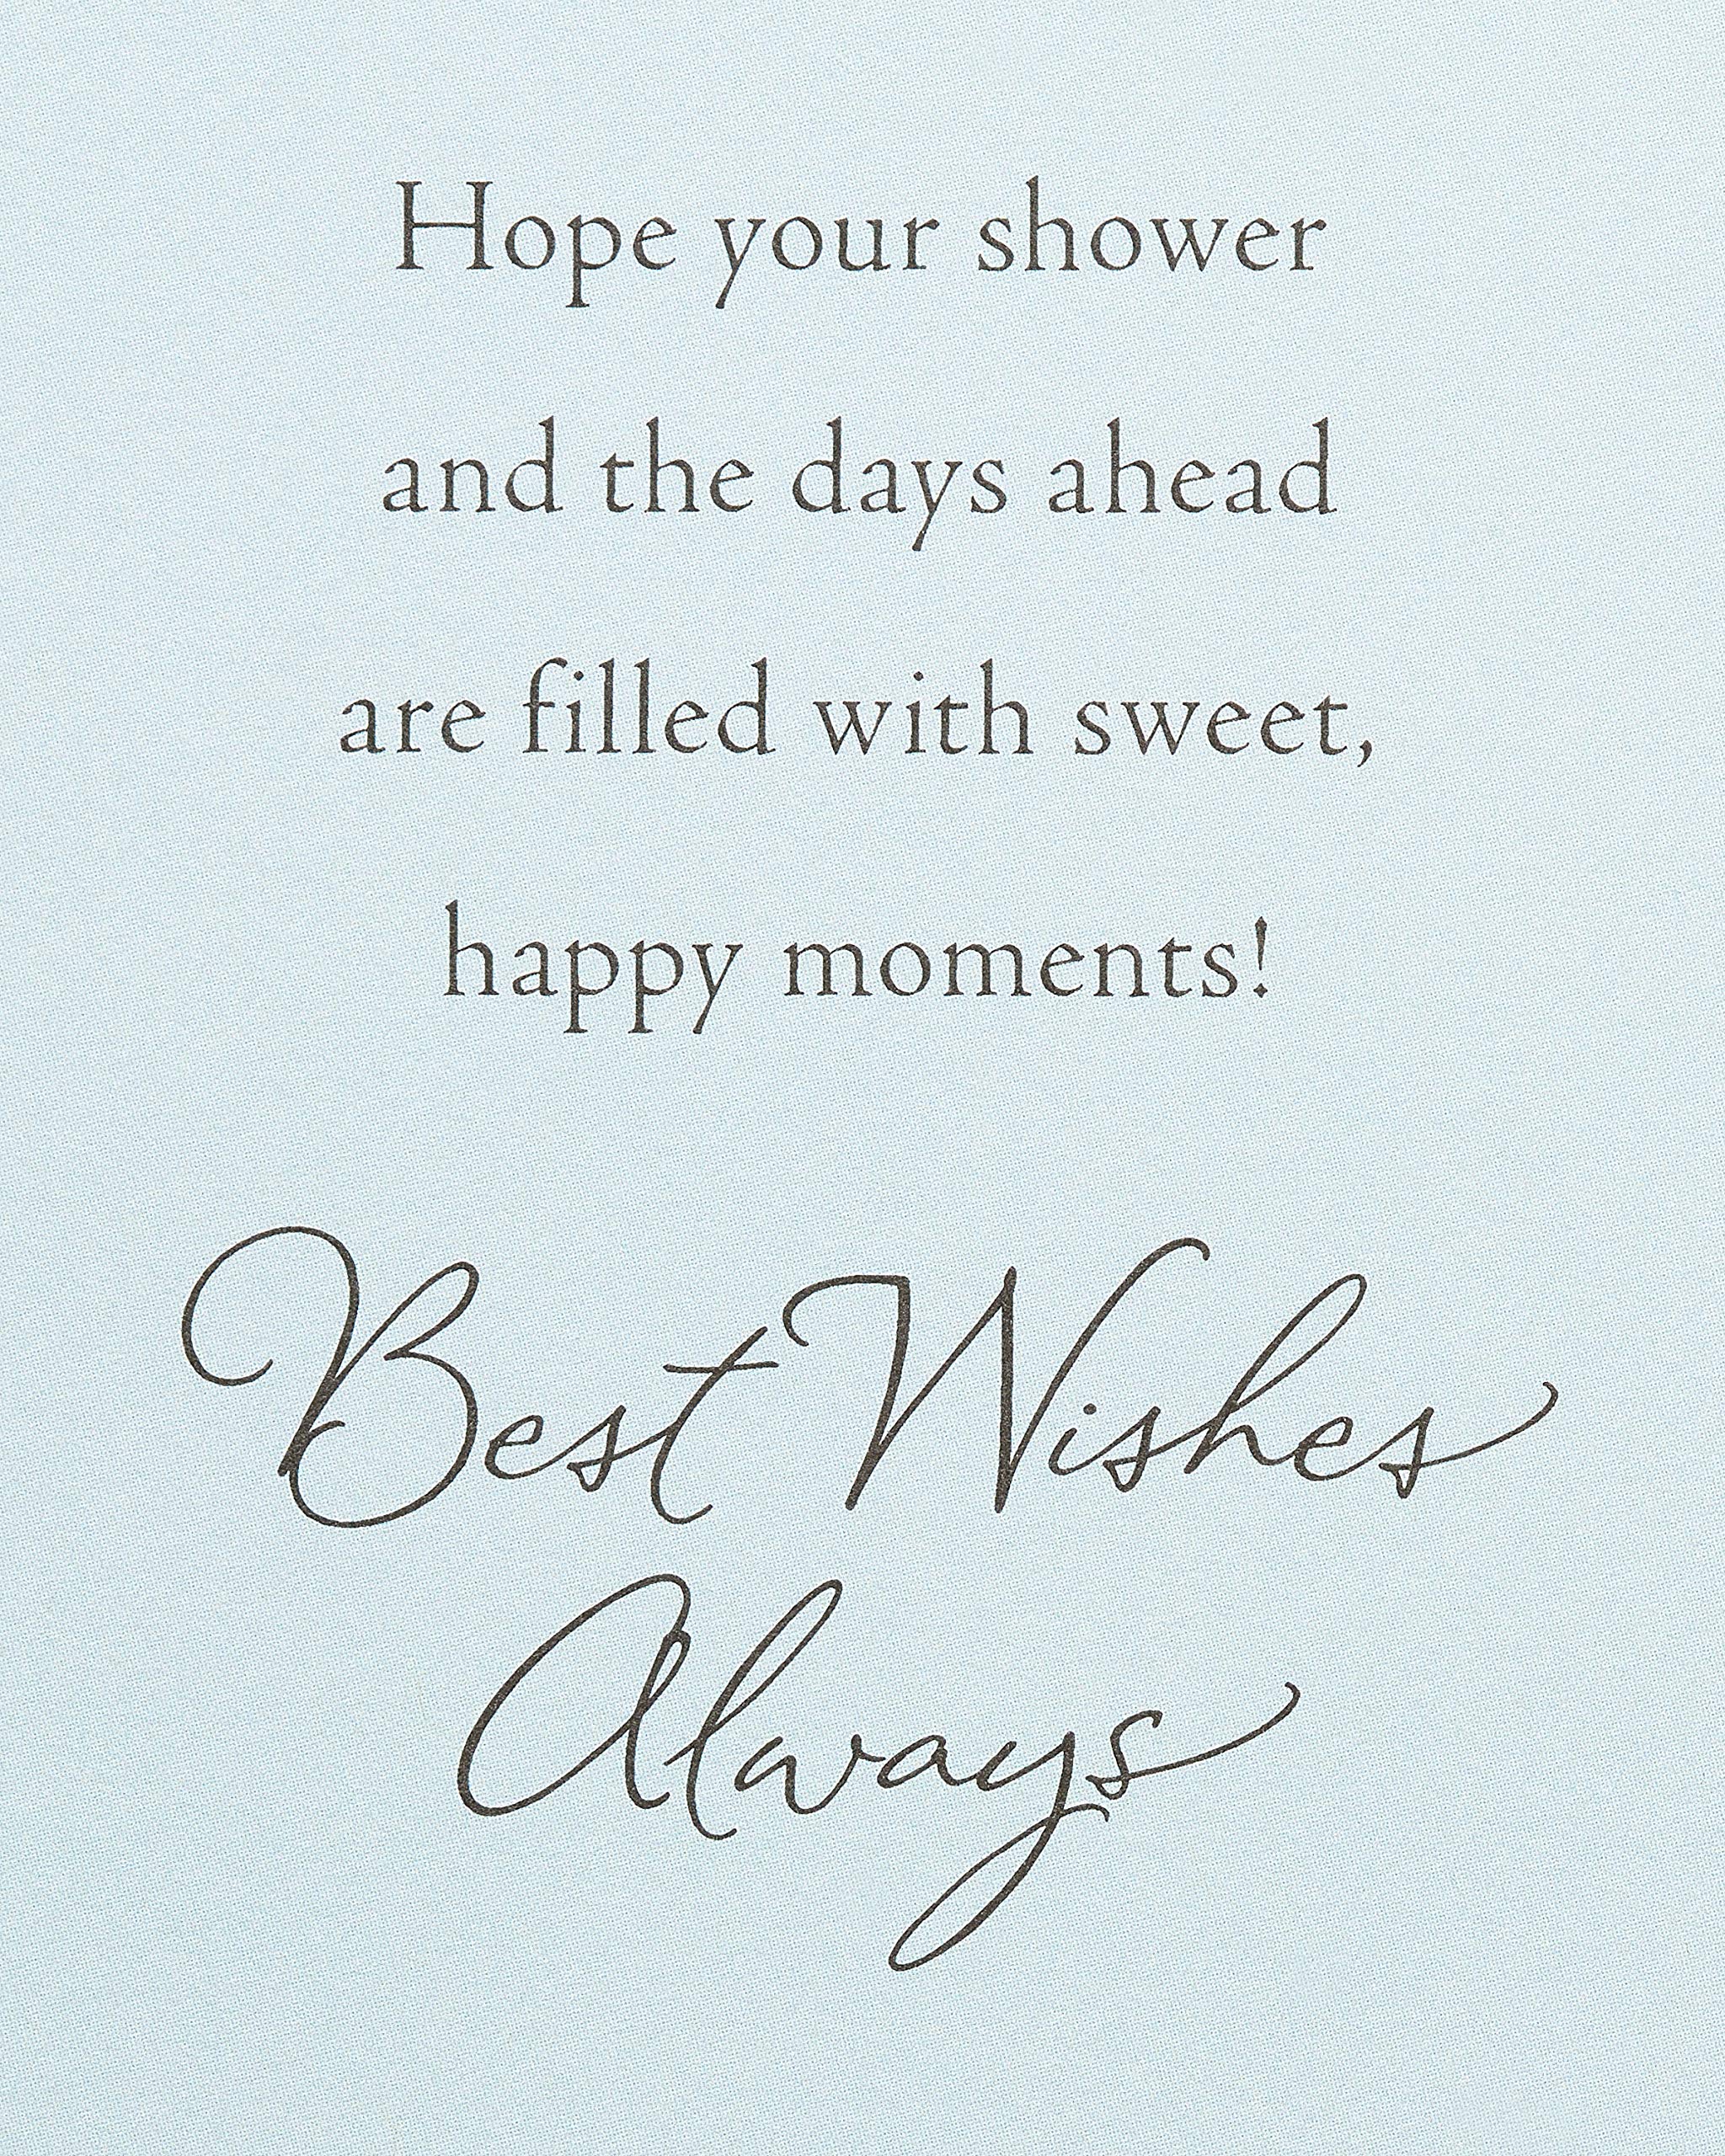 Hope your shower
and the days ahead
are filled with sweet,
happy moments!
Best Wishes
Always